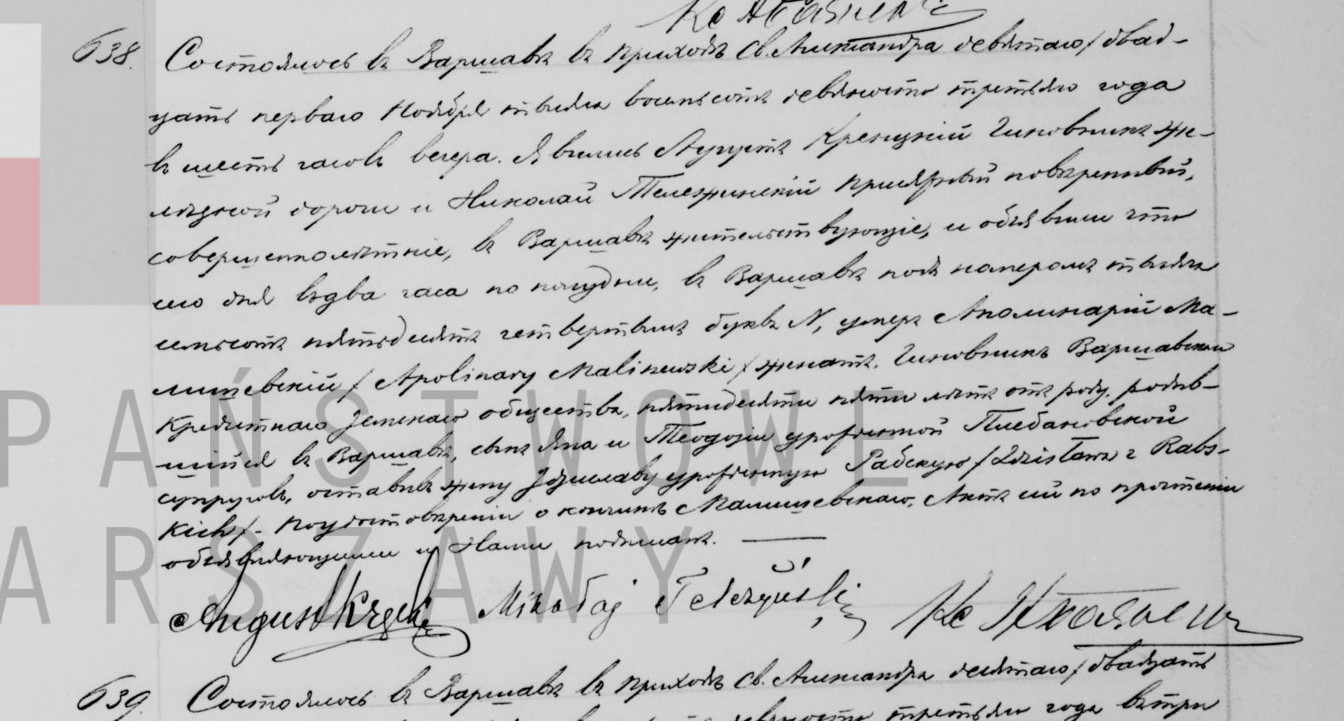 638. Состоялось въ Варшавѣ въ приходѣ Св. Александра девятаго / двад-
цать перваго Ноября тысяча восемьсотъ девяносто третьяго года
въ шесть часовъ вечера. Явились Августъ Кренцкій Чиновникъ же-
лѣзной дороги и Николай Тележинскій присяжный повѣренный,
совершеннолѣтніе, въ Варшавѣ жительствующіе, и объявили что
сего дня въ два часа по полудни, въ Варшавѣ подъ номеромъ тысяча
семьсотъ пятьдесятъ четвертымъ буква N, умеръ Аполинарій Ма-
лишевскій / Apolinary Malinewski / женатъ. Чиновникъ Варшавскаго
Кредитнаго Земскаго общества, пятидесяти пяти лѣтъ отъ роду, родив-
шійся въ Варшавѣ, сынъ Яна и Теодозіи урожденной Плебановской
супруговъ, оставивъ жену Здзиславу урожденную Рабскую / Zdzisława z Rabs-
kich /. По удостовѣреніи о кончинѣ Малишевскаго, Актъ сей по прочтеніи
объявляющими и Нами подписанъ.
Mikołaj Teleżyński
639. Состоялось въ Варшавѣ въ приходѣ Св. Александра девятаго / двадцать
девяносто третьяго года въ три
PAŃSTWOWE
ARSZAWY